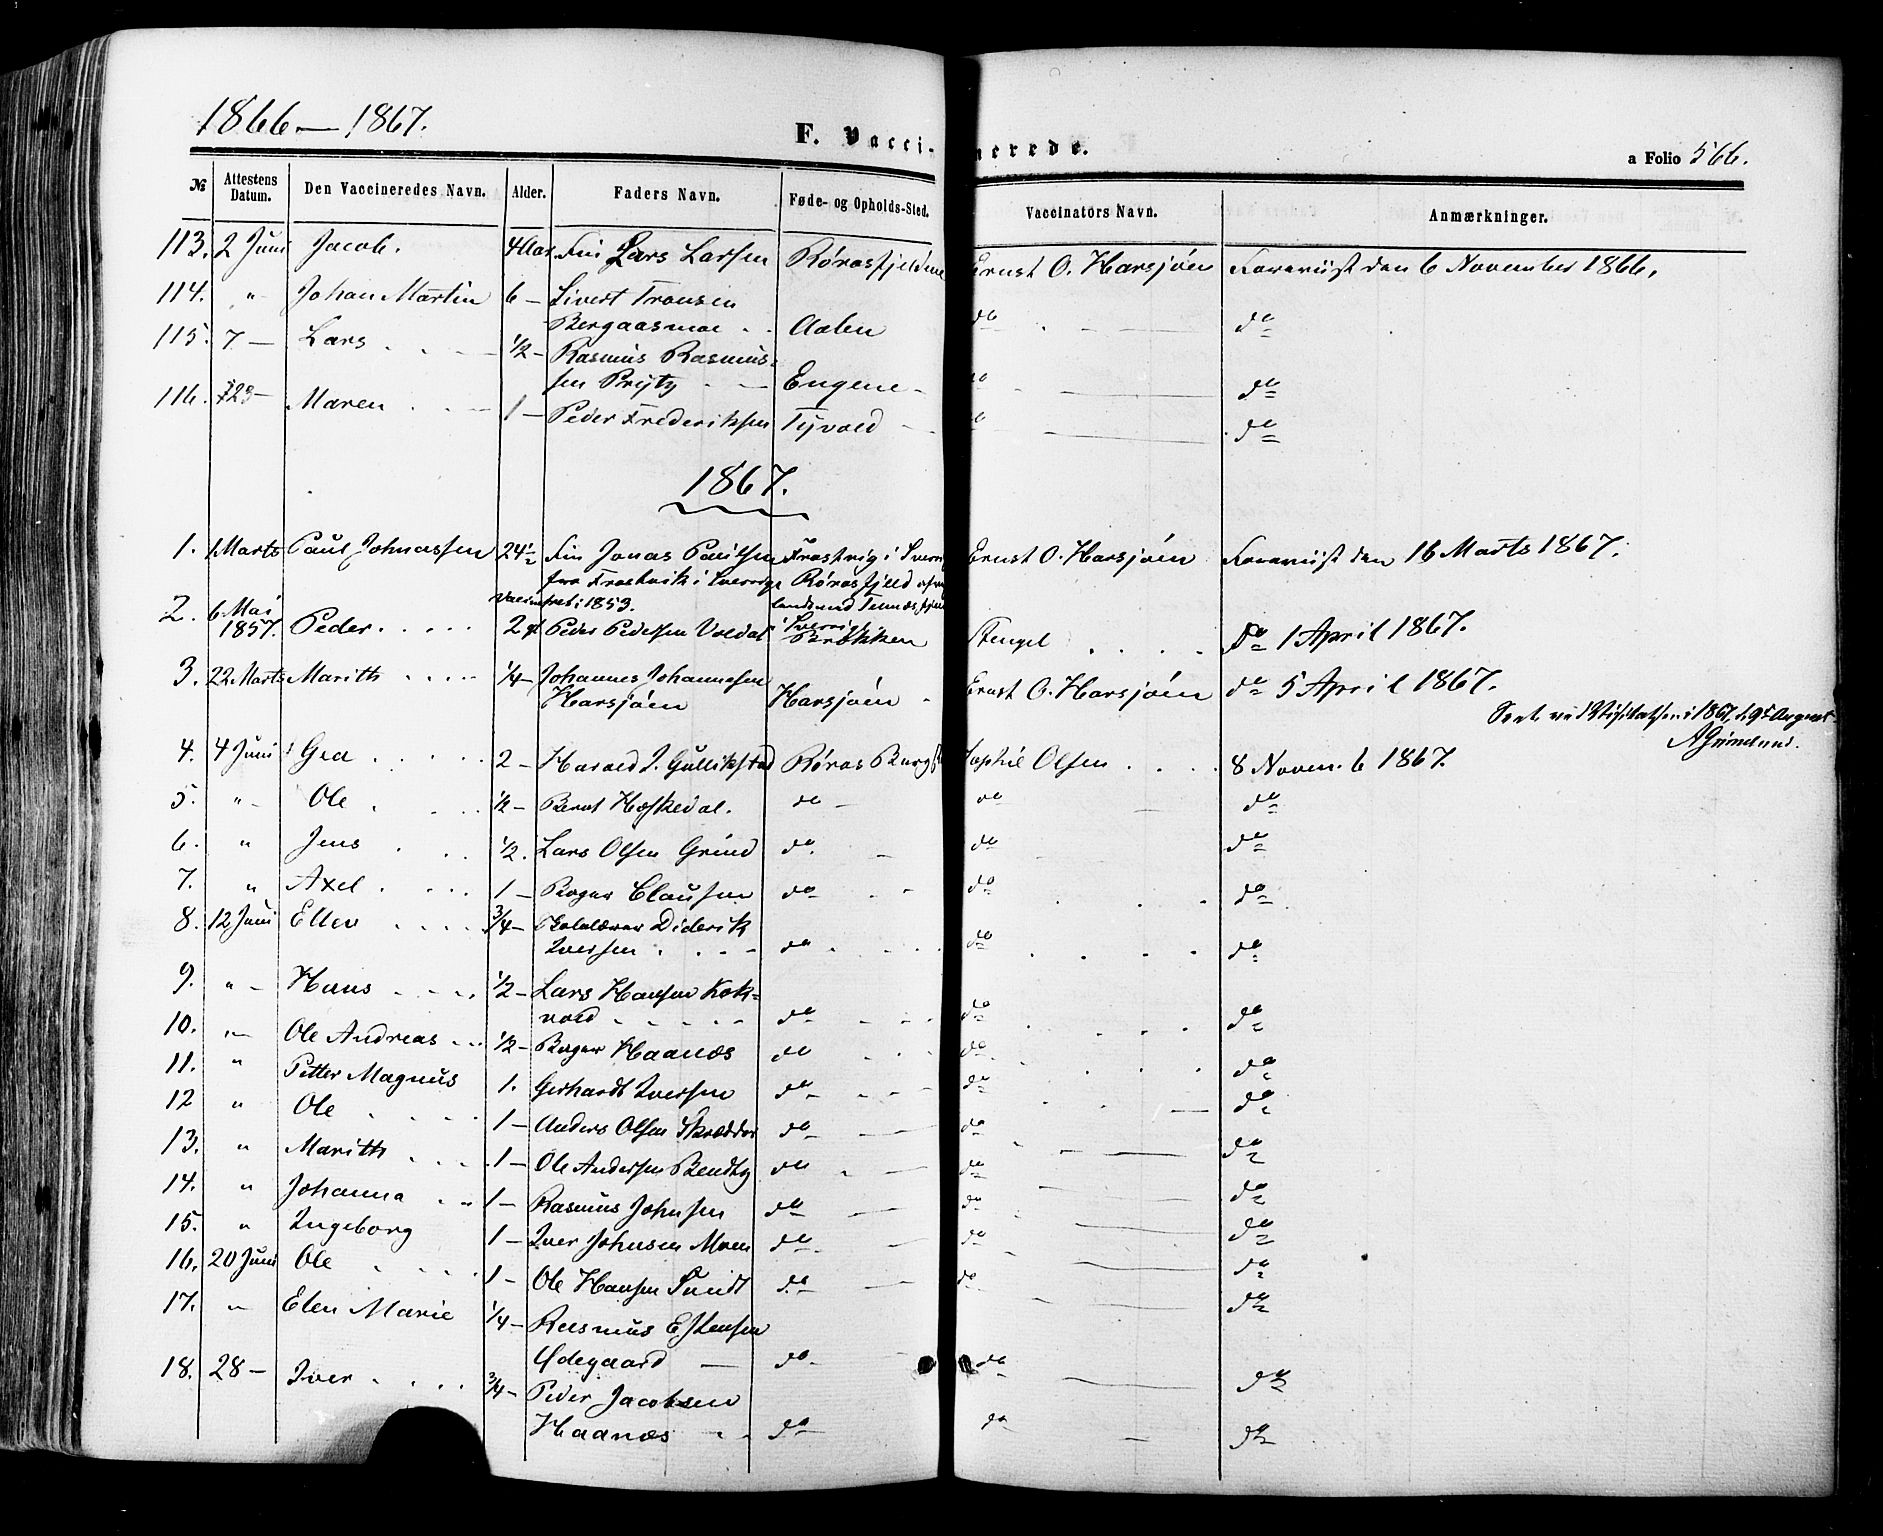 1866 — 1867.
F. Vaccinerede.
a Folio 566.
№ Attestens Datum. Den Vaccineredes Navn. Alder. Faders Navn. Føde- og Opholds-Sted. Vaccinators Navn. Anmærkninger.
113. 2 Juni Jacob. 4 Aar Fin Lars Larsen Rørosfjeldene Ernst O. Harsjøen Foreviist den 6 November 1866.
114. " Johan Martin 6 — Sivert Tronsen
Bergaasmoe . . Aalen do . — do
115. 7 — Lars . . — 1/2 — Rasmus Rasmus-
sen Prytz . — Engene — do . — do
116. 23 — Maren . . — 1 — Peder Frederiksen Tyvold — do — do
1867.
1. 1 Marts Paul Johnassen 24 1/2 Fin Jonas Paulsen Frostvig i Sverrig Ernst O. Harsjøen Foreviist den 16 Marts 1867.
fra Frostvik i Sverrige Rørosfjeld
Vaccineret i 1853. Tennæs
i Sverrig
2. 6 Mai
1857. Peder . . . . . 2 Peder Pedersen Voldal Brækken Stengel . . . . Do 1 April 1867.
3. 22 Marts Marith . . . . 1/4 — Johannes Johannesen
Harsjøen Harsjøen - Ernst O. Harsjøen do 5 April 1867.
Seet ved Visitatsen i 1867, d. 9d August
A Grimelund.
4. 4 Juni Gea . . . . . 2 — Harald J. Gullikstad Røros Bergst Sophie Olsen . . . . 8 Novemb 1867.
5. " - Ole . . . . 1/2 — Bernt Hæskedal. do — do — do
6. " Jens . . . 1/2. Lars Olsen Grind do. — do — do
7. " Axel . . . . 1 — Borger Clausen do . - do . . . do
8. 12 Juni Ellen . . . . 3/4 — Skolelærer Diderik
Iversen . . . — do . . . . do . . . . do
9. " - Hans . . . . 1/2 — Lars Hansen Kok-
vold . . . . . do . . . do . . . . do
10. " — Ole Andreas . . . 1/2 — Borger Haanæs do . . . do . . . . do
11. " Petter Magnus 1. Gerhardt Iversen do - . . . do . . . — do
12 " Ole . . . . 1 — Anders Olsen Skrædder do — do . — do
13. " Marith . . . . 1 — Ole Andersen Bendty do . — do — do
14. " Johanna . . . 1 — Rasmus Johnsen do — do . — do
15. " Ingeborg 1 — Iver Johnsen Moen do . — do . — do
16. 20 Juni Ole . . . . 1 — Ole Hansen Sundt do — do — do
17. " - Elen Marie 1/4 — Rasmus Estensen
Ødegaard — do - — do — do
18. 28 — Iver . . . . 3/4 — Peder Jacobsen
Haanæs . . do — do — do